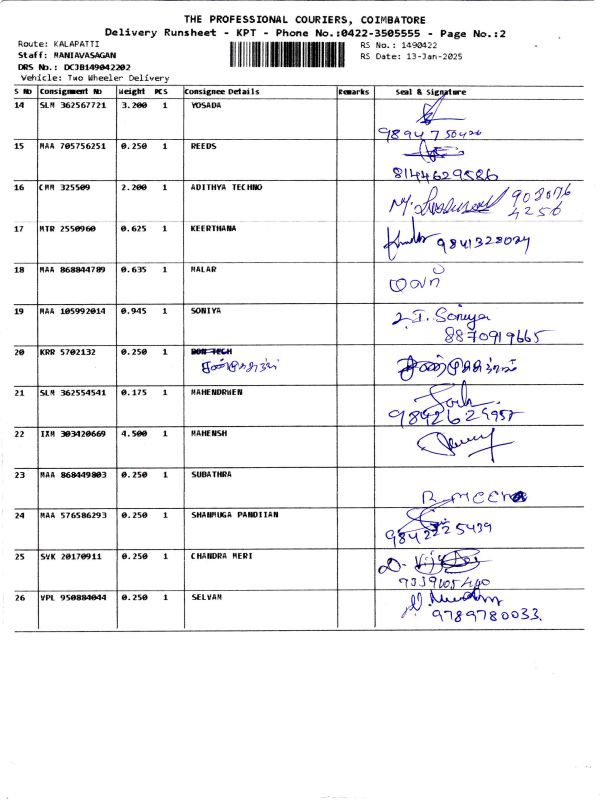 THE PROFESSIONAL COURIERS, COIMBATORE
Delivery Runsheet - KPT - Phone No.:0422-3505555 - Page No.:2
Route: KALAPATTI RS No.: 1490422
Staff: MANIAVASAGAN RS Date: 13-Jan-2025
DRS No.: DCJB149042202
Vehicle: Two Wheeler Delivery
S No Consignment No Weight PCS Consignee Details Remarks Seal & Signature
14 SLM 362567721 3.200 1 YOSADA
15 MAA 705756251 0.250 1 REEDS
8144629586
16 CMM 325509 2.200 1 ADITHYA TECHNO
17 MTR 2550960 0.625 1 KEERTHANA
9841328024
18 MAA 868844789 0.635 1 MALAR
மலர்
19 MAA 105992014 0.945 1 SONIYA
I. Soniya
8870919665
20 KRR 5702132 0.250 1 DON TECH
21 SLM 362554541 0.175 1 MAHENDRWEN
22 IXM 303420669 4.500 1 MAHENSH
23 MAA 868449803 0.250 1 SUBATHRA
R. MEENA
24 MAA 576586293 0.250 1 SHANMUGA PANDIIAN
9842225439
25 SVK 20170911 0.250 1 CHANDRA MERI
26 VPL 950884044 0.250 1 SELVAN
9789780033.